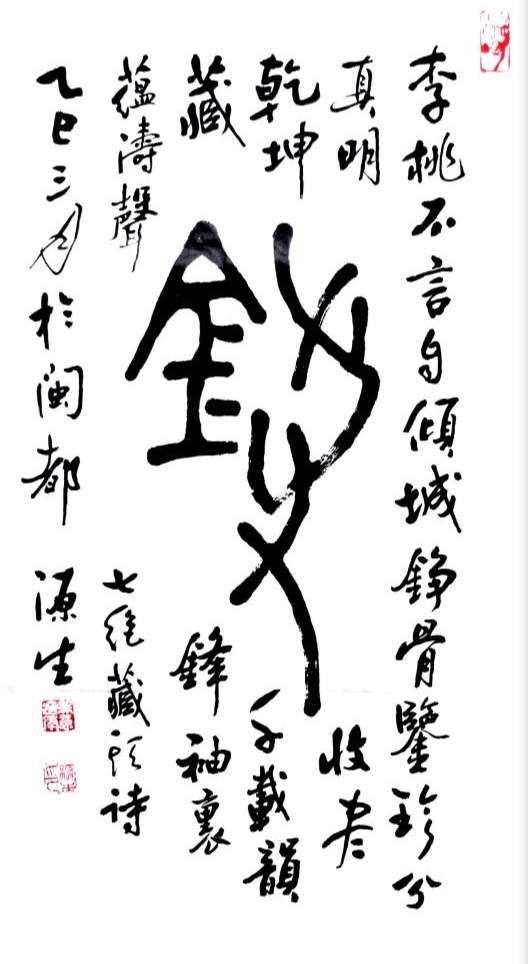 李桃不言自傾城錚骨鑒珍分
真明
收尽
乾坤
千載韻
藏
鋒袖裏
蘊濤聲
錚
七绝藏头诗
乙巳三月於闽都 源生